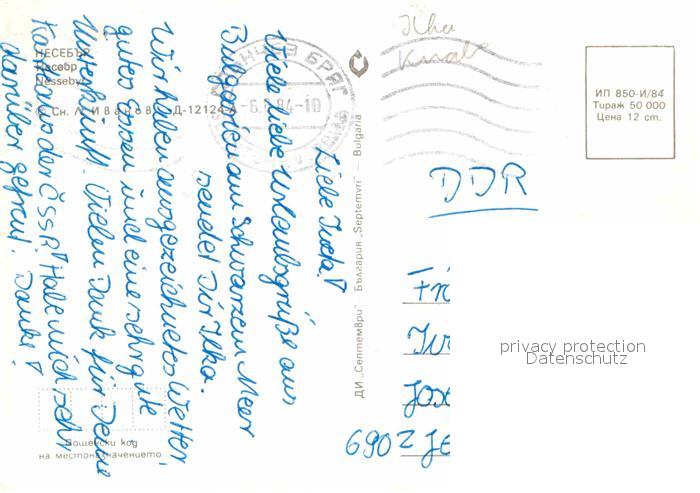 НЕСЕБЪР
Несебр
Nessebyr
© Сн. Л. Иванов Д-12124-А
СЛЪНЧЕВ БРЯГ
-6. 84-10
Liebe Jutta!
Viele liebe Urlaubsgrüße aus
Bulgarien am Schwarzen Meer
sendet Dir Ilka.
Wir haben ausgezeichnetes Wetter,
gutes Essen und eine sehr gute
Unterkunft. Vielen Dank für Deine
Karte aus der ČSSR! Habe mich sehr
darüber gefreut. Danke!
Пощенски код
на местоназначението
ДИ „Септември" България „Septemvri" — Bulgaria
Ilka
ИП 850-И/84
Тираж 50 000
Цена 12 ст.
DDR
690Z Je
privacy protection
Datenschutz